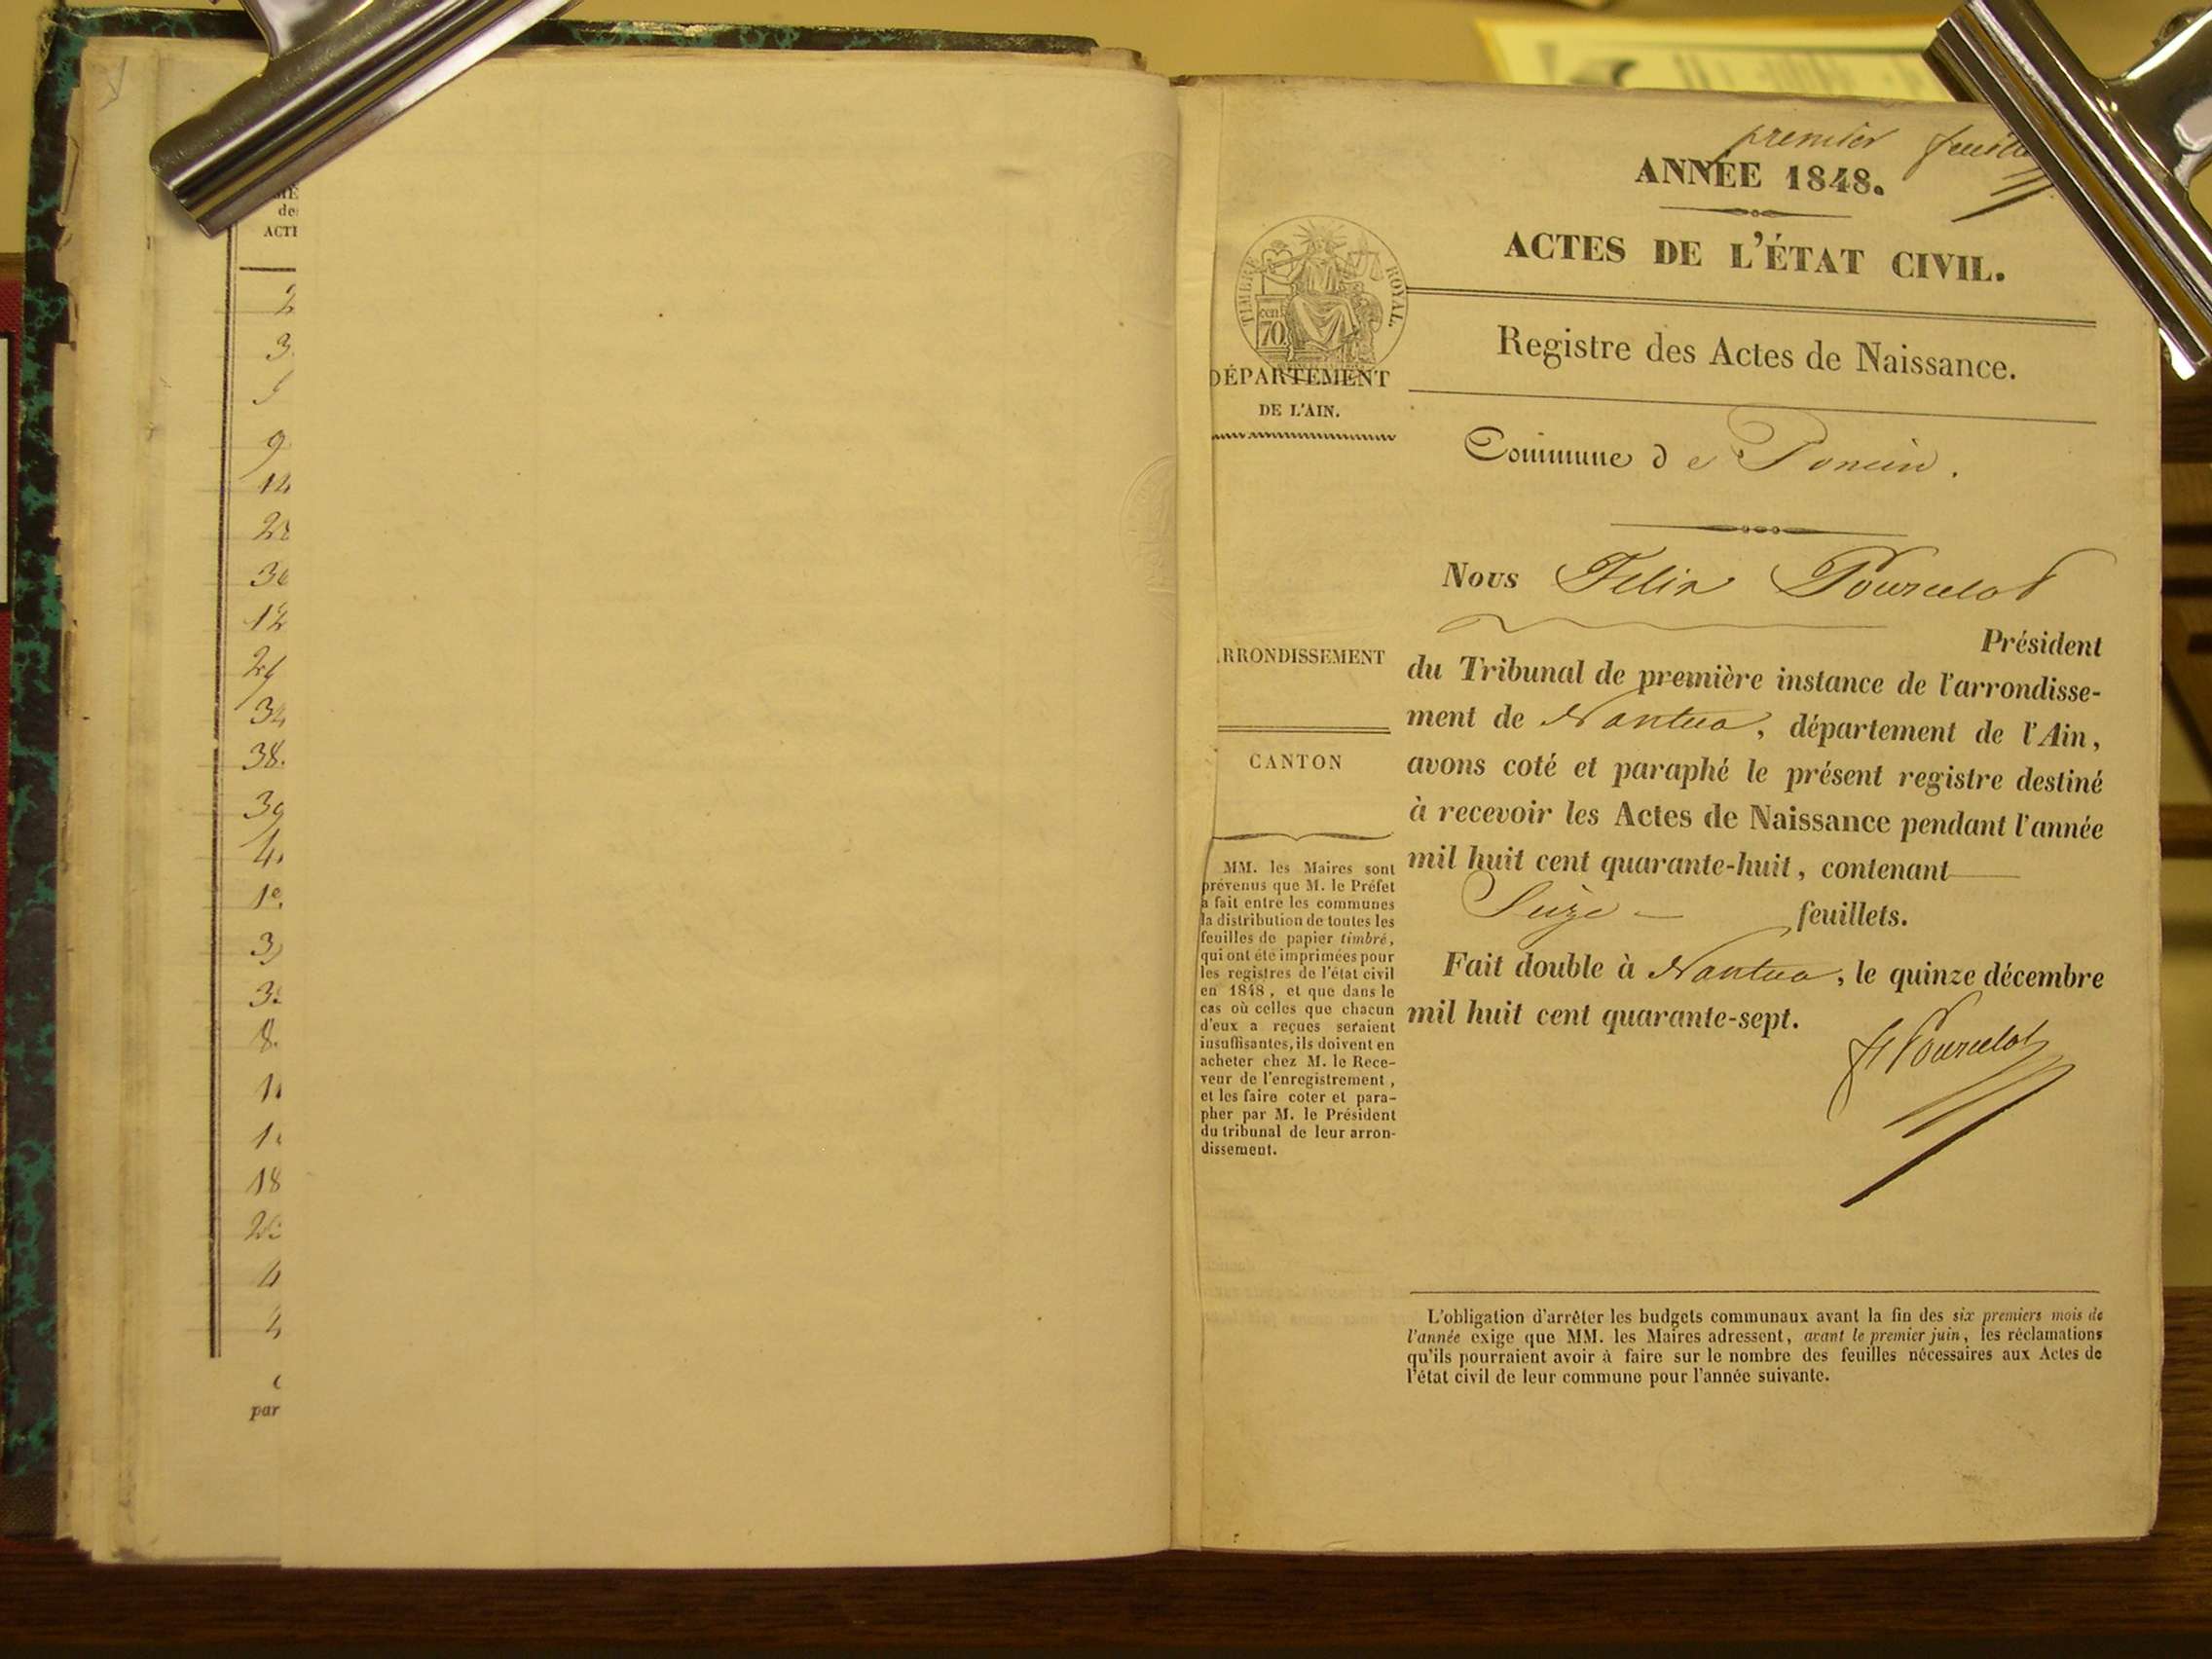 de
ACTI
2
3.
9
12
28
30
12
34
38.
39
3
8.
18
4
par
premier
ANNÉE 1848.
ACTES DE L'ÉTAT CIVIL.
TIMBRE ROYAL.
cent 70
Registre des Actes de Naissance.
DÉPARTEMENT
DE L'AIN.
Commune de Poncin.
Nous Félix Pourcelot
Président
ARRONDISSEMENT
du Tribunal de première instance de l'arrondisse-
ment de Nantua, département de l'Ain,
CANTON
avons coté et paraphé le présent registre destiné
à recevoir les Actes de Naissance pendant l'année
mil huit cent quarante-huit, contenant
Seize feuillets.
Fait double à Nantua, le quinze décembre
mil huit cent quarante-sept.
Pourcelot
MM. les Maires sont
prévenus que M. le Préfet
a fait entre les communes
la distribution de toutes les
feuilles de papier timbré,
qui ont été imprimées pour
les registres de l'état civil
en 1848, et que dans le
cas où celles que chacun
d'eux a reçues seraient
insuffisantes, ils doivent en
acheter chez M. le Rece-
veur de l'enregistrement,
et les faire coter et para-
pher par M. le Président
du tribunal de leur arron-
dissement.
L'obligation d'arrêter les budgets communaux avant la fin des six premiers mois de
l'année exige que MM. les Maires adressent, avant le premier juin, les réclamations
qu'ils pourraient avoir à faire sur le nombre des feuilles nécessaires aux Actes de
l'état civil de leur commune pour l'année suivante.